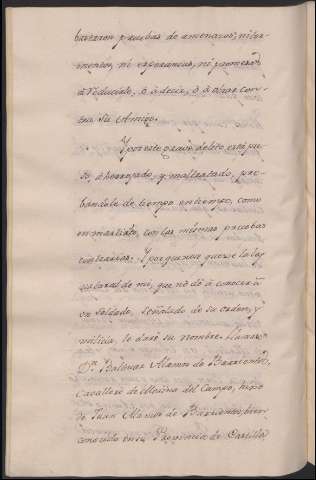 bastaron pruebas de amenazas, ni tor-
mentos, ni esperanzas, ni promesas
à reducirle, ò à decir, ò à obrar con-
tra su Amigo.
Y por este grave delito está pre-
so, aherrojado, y maltratado, pro-
bandole de tiempo en tiempo, como
en martirio, con las mismas pruebas
contrarias. Y porque nea que se la
de mi, que no dò à conocer à
un soldado, señalado de su orden, y
milicia, le daré su nombre. Llamase
Dn. Baltasar Alamos de Barrientos,
Cavallero de Medina del Campo, hijo
de Juan Alamos de Barrientos, bien
conocido en su Provincia de Castilla